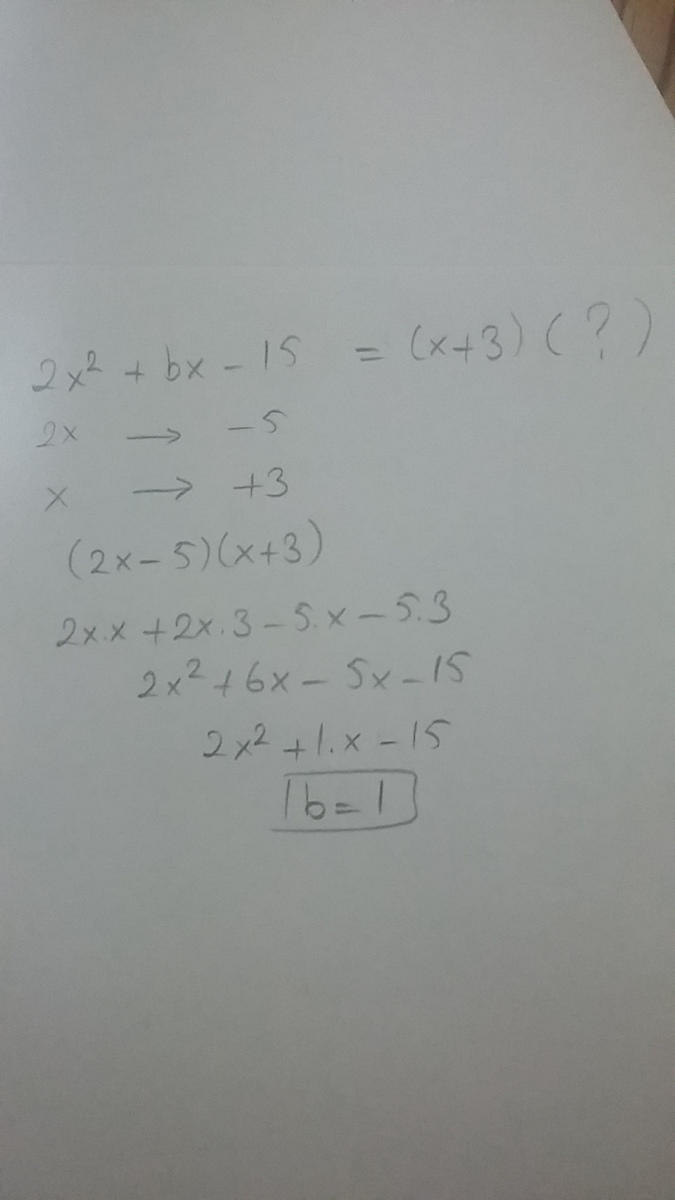 2x² + bx - 15 = (x+3) (?)
2x → -5
x → +3
(2x-5)(x+3)
2x.x + 2x.3 - 5.x - 5.3
2x² + 6x - 5x - 15
2x² + 1.x - 15
b = 1